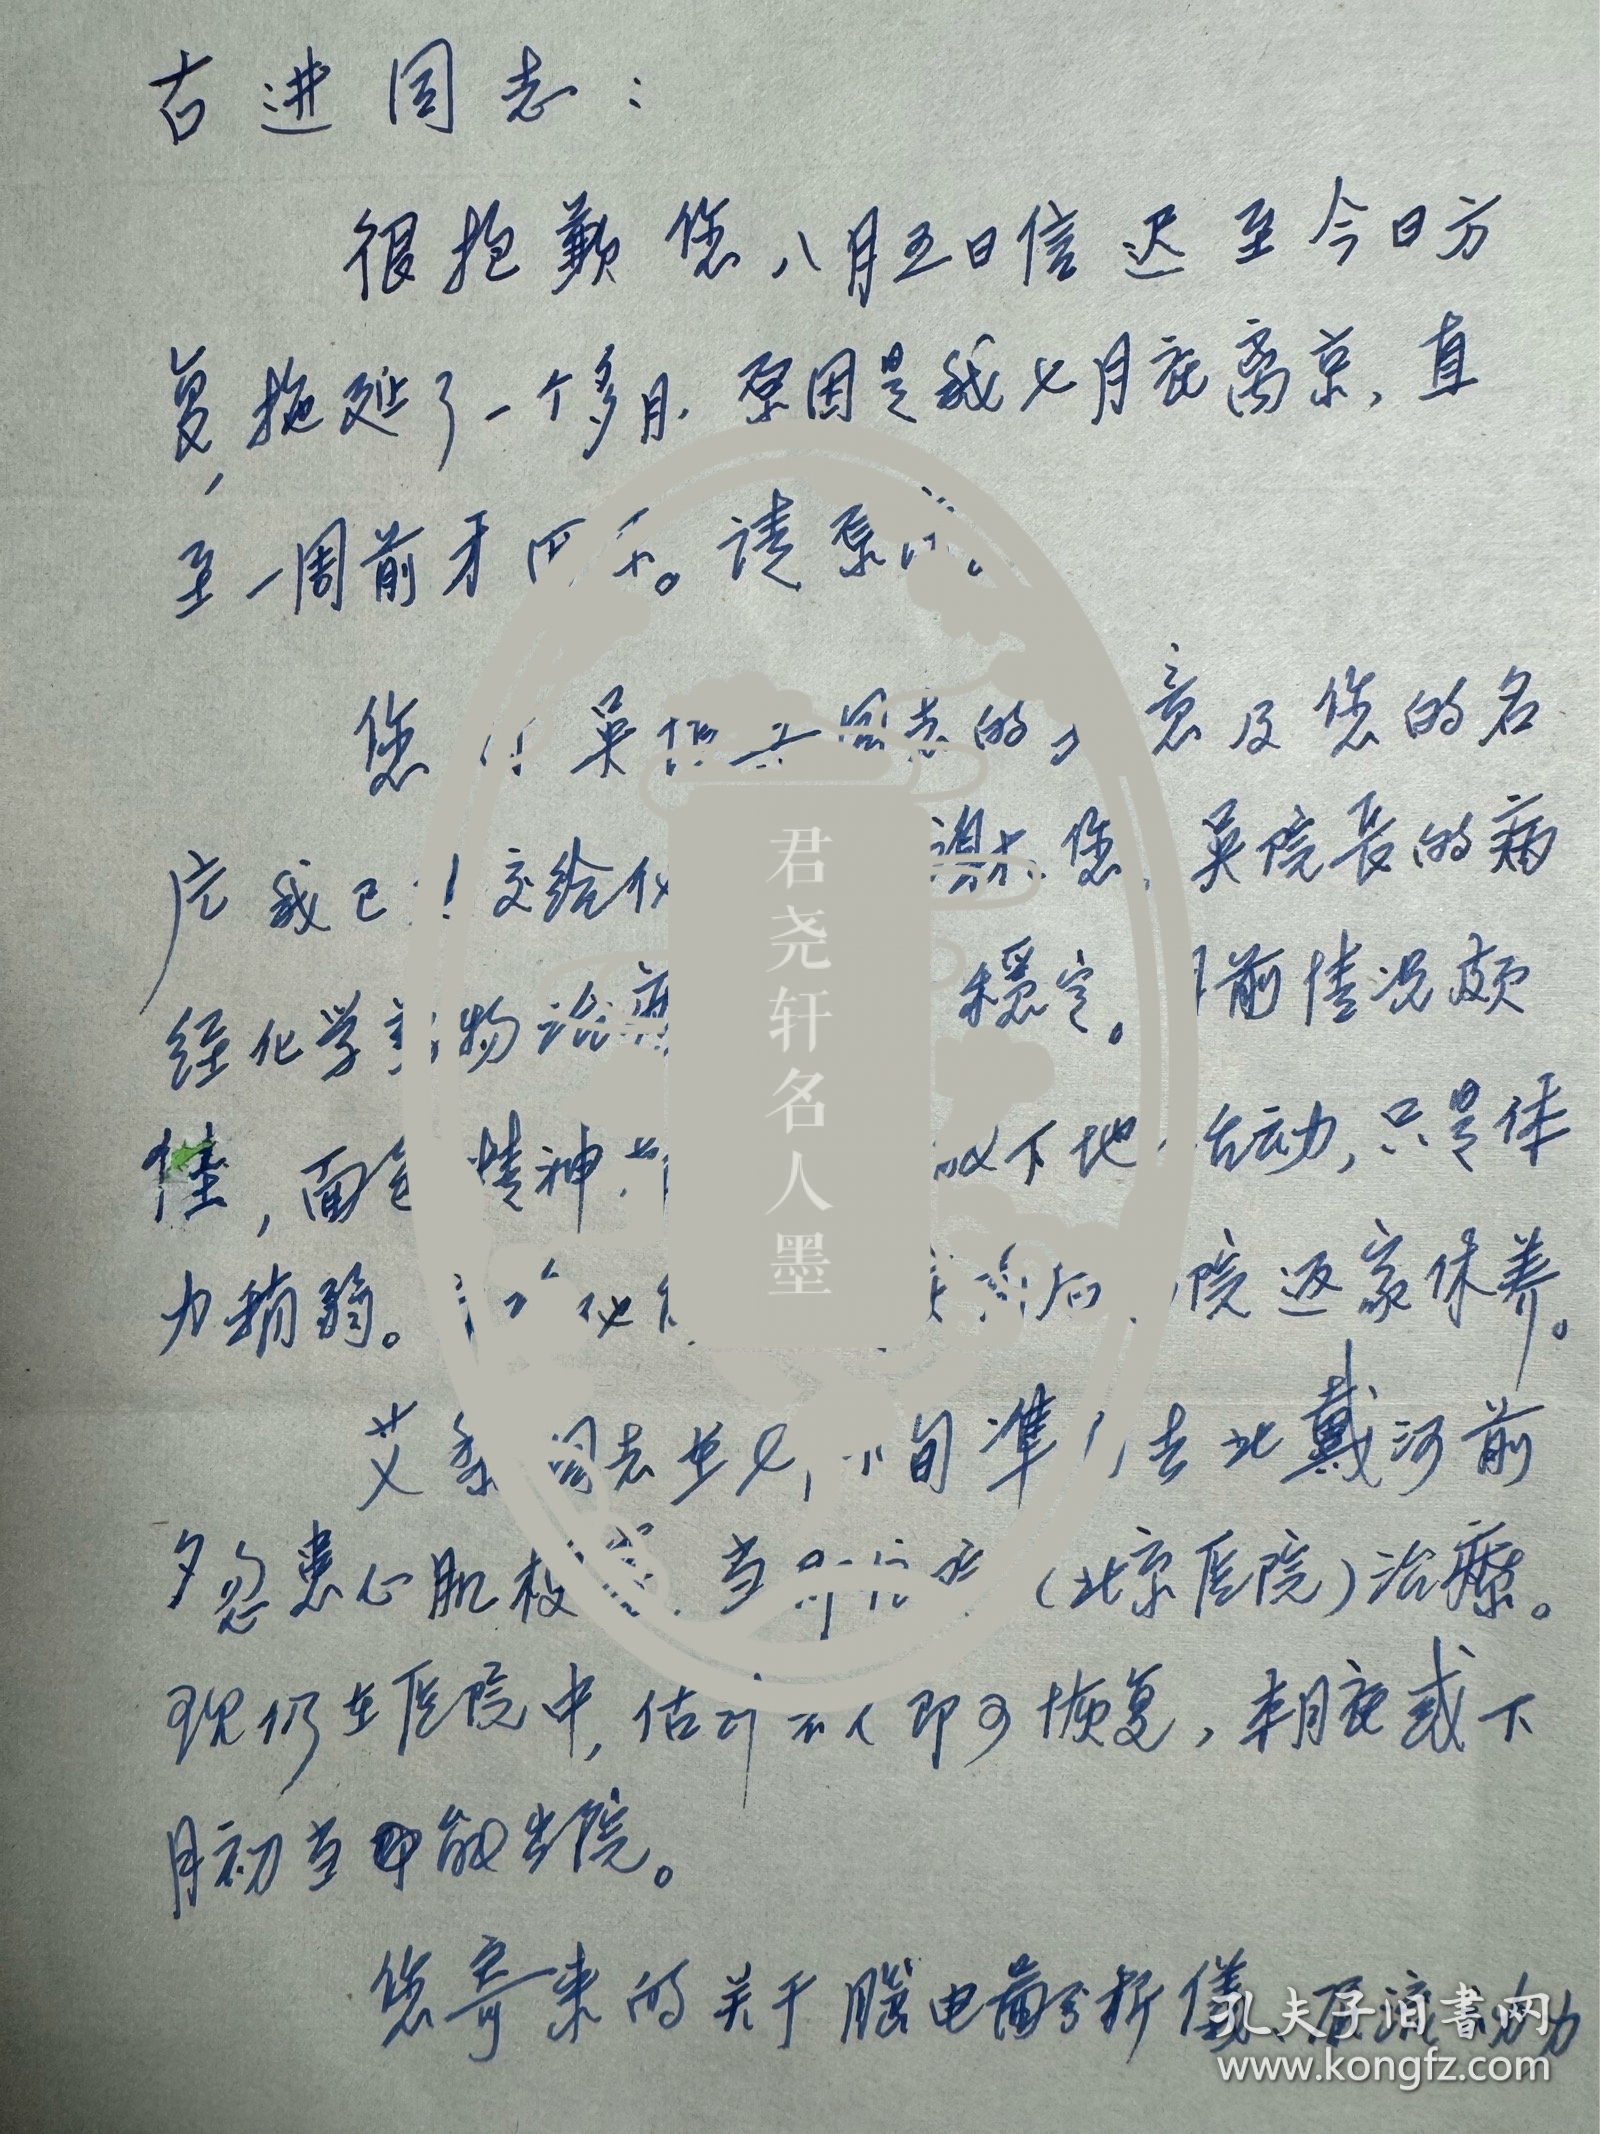 古进同志：
很抱歉您八月五日信迟至今日方
复，拖延了一个多月，原因是我七月底离京，直
至一周前才回京。请原谅。
您 吴 同志的 意及您的名
片我已 交给他 谢谢您，吴院长的病
经化学药物治疗 稳定。目前情况颇
佳，面色精神 下地活动，只是体
力稍弱。 他 后 院返家休养。
艾 同志在七月下旬准备去北戴河前
夕忽患心肌梗 当即住院（北京医院）治疗。
现仍在医院中，估计不久即可恢复，本月底或下
月初当可能出院。
您寄来的关于脑电图分析仪、 流动力
君尧轩名人墨
孔夫子旧书网
www.kongfz.com